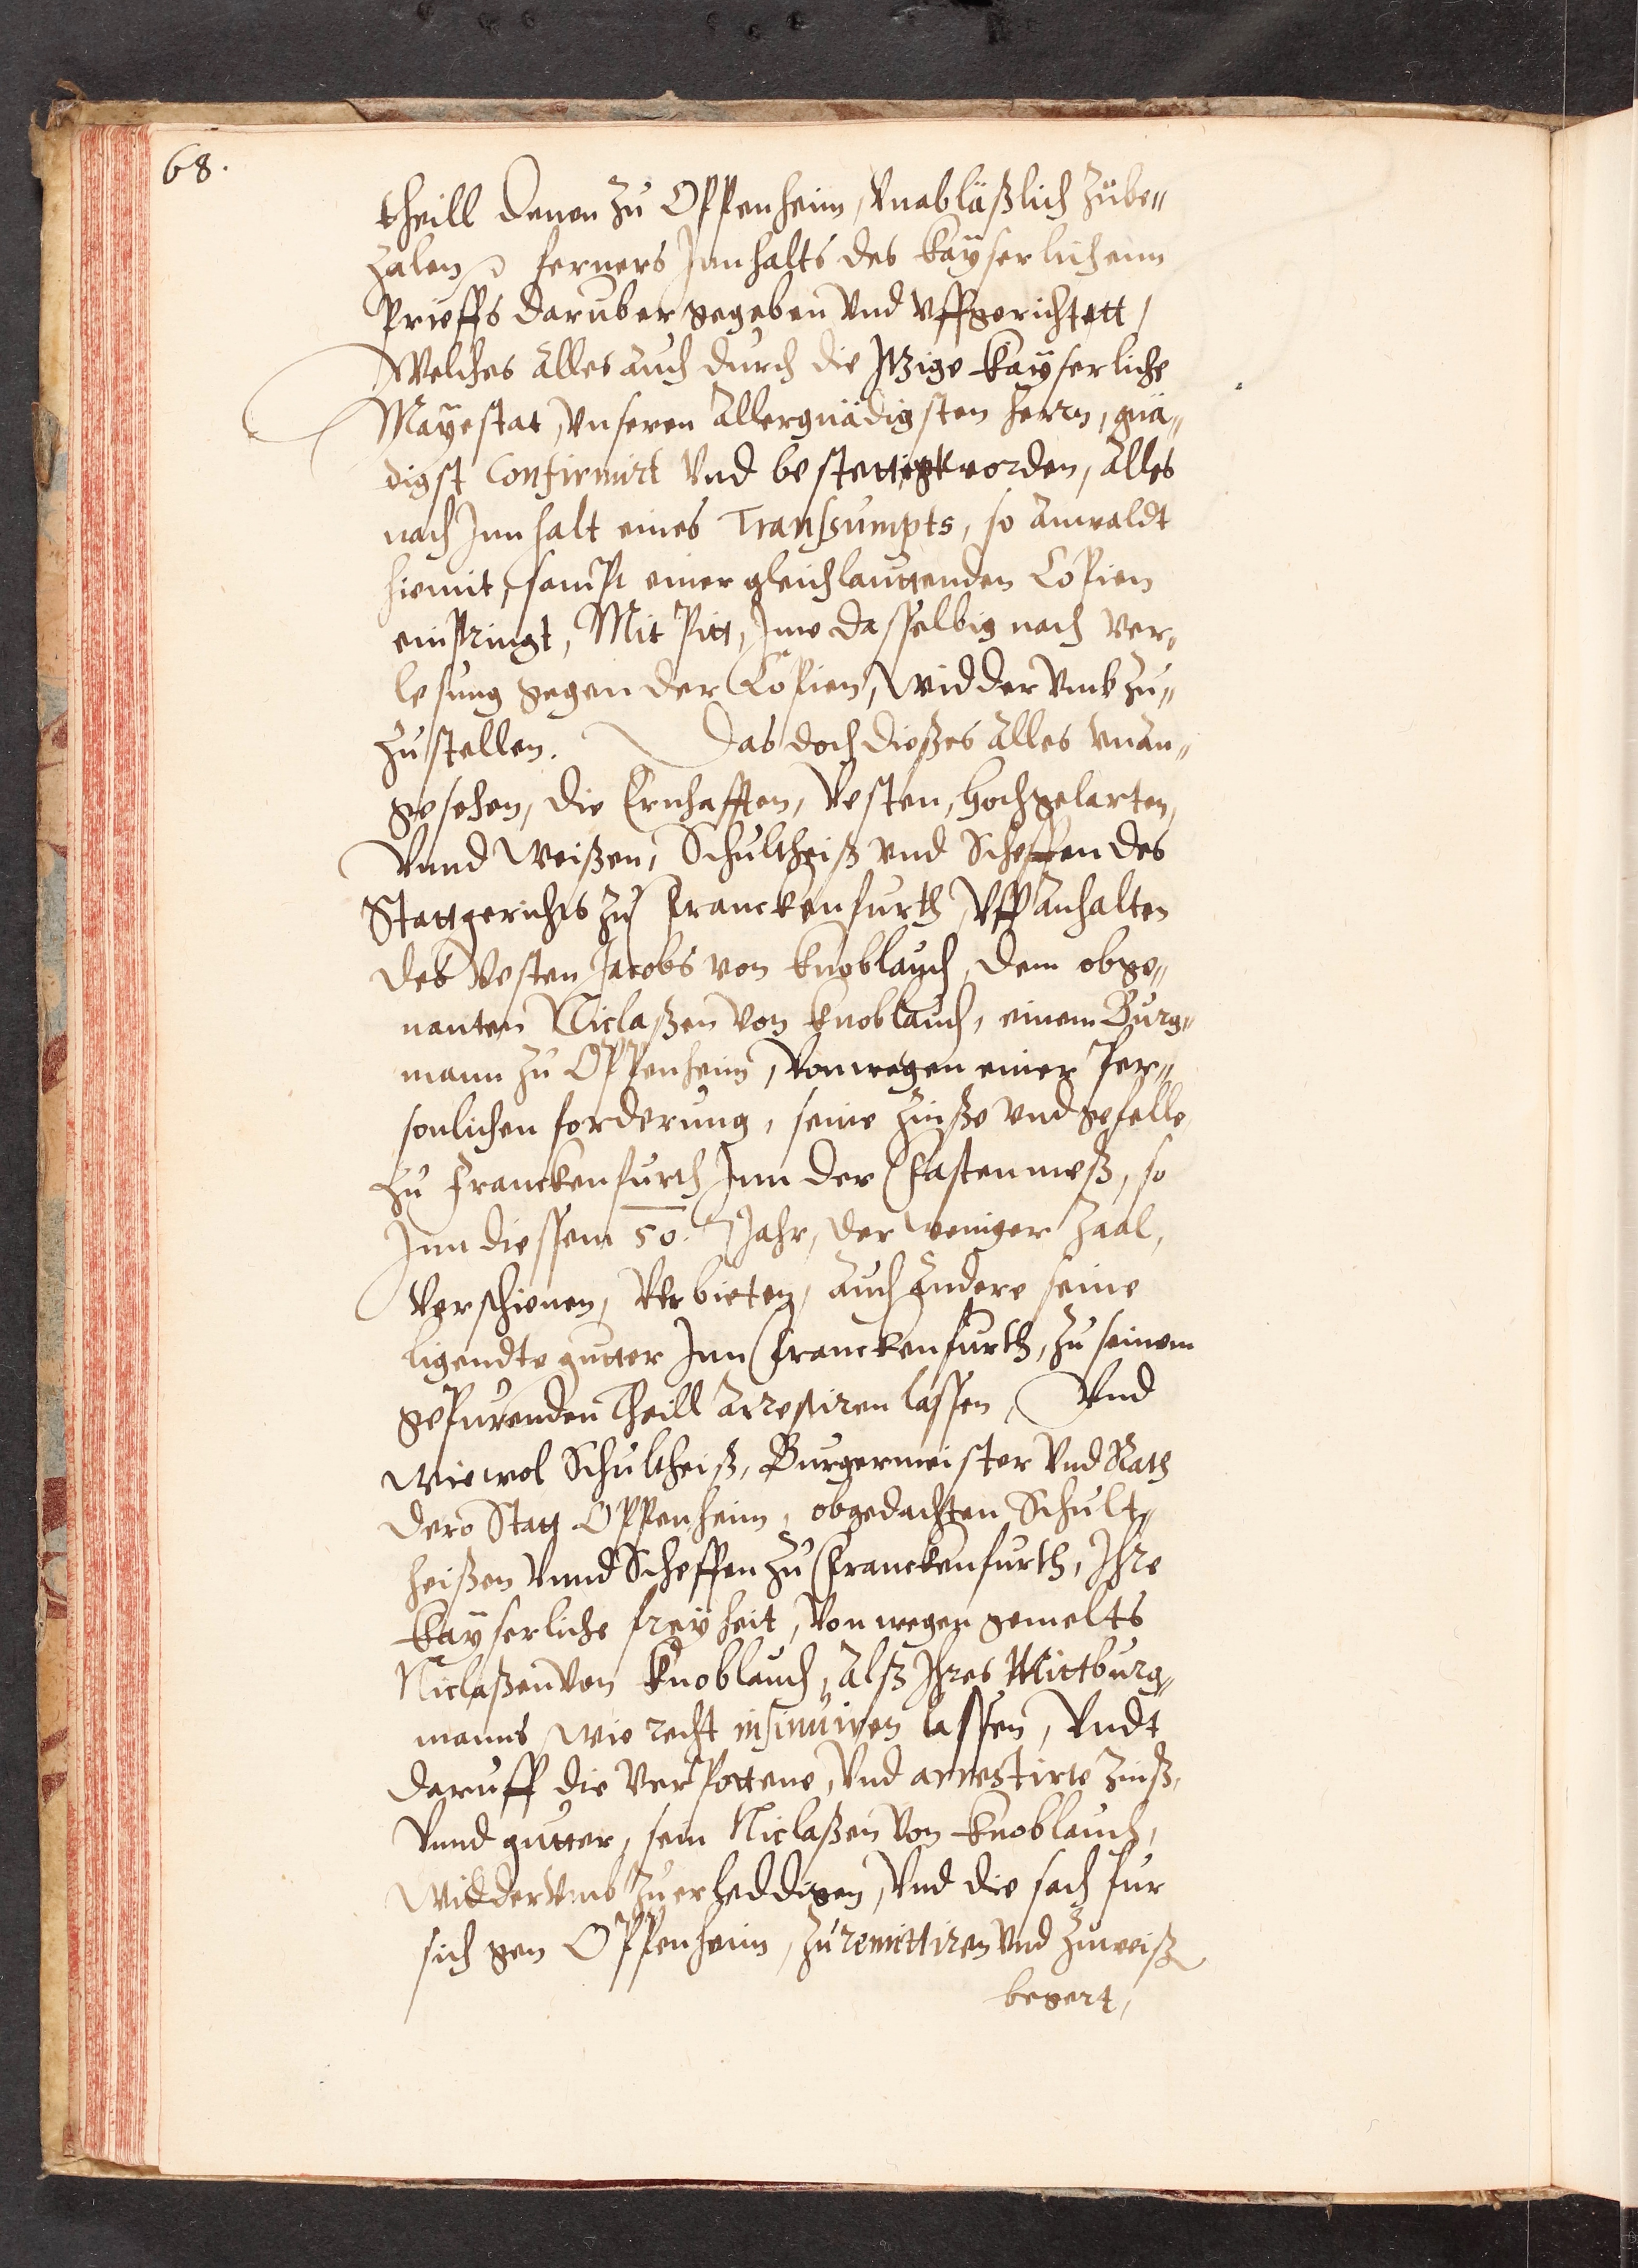 68.
theill denen zu Oppenheim, vnabläßlich zube„
zalen, ferners Jnnhalts des kayserlichenn
Prieffs daruber gegeben vnd vffgerichtett,
Welches alles auch durch die Jtzige kayserliche
Mayestat, vnseren allergnädigsten herrn, gnä„
digst Confirmirt vnd bestettigt worden, alles
nach Jnnhalt eines Transsumpts, so anwaldt
hiemit, sampt einer gleichlauttenden Copien
einpringt, Mit Pitt, Jme dasselbig nach ver„
lesung gegen der Copien, widder vmb zu„
zustellen. Das doch dießes alles vnan„
gesehen, die Ernhafften, Vesten, hochgelarten,
Vnnd weißen, Schultheiß vnd Scheffen des
Stattgerichts zu Franckenfurth, vff anhalten
des Vesten Jacobs von knoblauch, dem obge„
nanten Niclaßen von knoblauch, einem Burg„
mann zu Oppenheim, von wegen einer Per„
sonlichen forderung, seine zinße vnd gefelle
zu Franckenfurth Jnn der Fastenmeß, so
Jnn diessem 50. Jahr, der weniger zaal,
verschienen, verbieten, auch andere seine
ligendte gutter Jnn Franckenfurth, zu seinem
gepurenden Theill arrestiren lassen, Vnd
wiewol Schultheiß, Burgermeister vnd Rath
dero Statt Oppenheim, obgedachten Schult„
heißen vnnd Scheffen zu Franckenfurth, Jhre
kayserliche freyheit, von wegen gemelts
Niclaßen von knoblauch, alß Jhres Mittburg„
manns wie recht insinuiren lassen, Vndt
daruff die verpottene, vnd arrestirte zinß,
Vnnd gutter, jem Niclaßen von knoblauch,
widdervmb zu erleddigen, vnd die sach fur
sich gen Oppenheim, zuremittiren vnd zuweiß
begert,